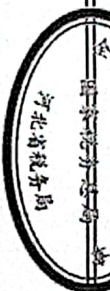 国家税务总局
河北省税务局